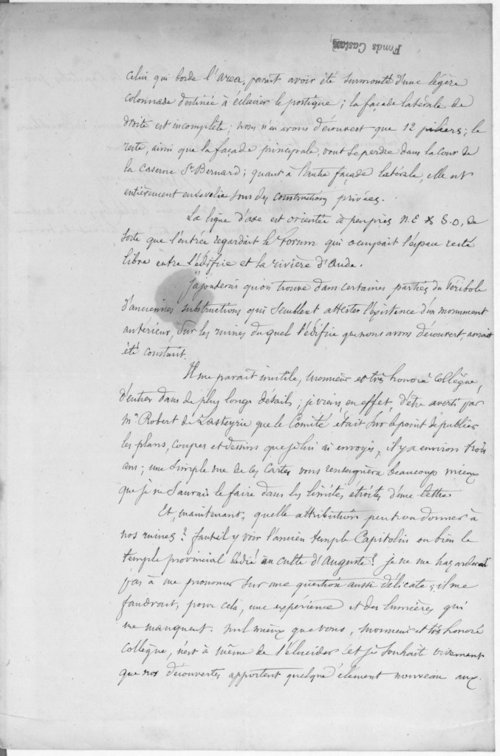 Fonds Castan
celui qui borde l'area, paraît avoir été surmonté d'une légère
colonnade destinée à éclairer le portique ; la façade latérale de
droite est incomplète ; nous n'en avons découvert que 12 piliers ; le
reste, ainsi que la façade principale, vont se perdre dans la cour de
la Caserne St Bernard ; quant à l'autre façade latérale, elle est
entièrement ensevelie sous des constructions privées.
La ligne d'axe est orientée à peu près N.E. S.O, de
sorte que l'entrée regardait le Forum qui occupait l'espace resté
libre entre l'édifice et la rivière d'Aude.
J'ajouterai qu'on trouve dans certaines parties du Péribole
d'anciennes substructions qui semblent attester l'existence d'un monument
antérieur, sur les ruines duquel l'édifice que nous avons découvert aurait
été construit.
Il me paraît inutile, monsieur et très honoré collègue,
d'entrer dans de plus longs détails ; je viens, en effet, d'être averti par
Mr Robert de Lasteyrie que le Comité était sur le point de publier
les plans, coupes et dessins que je lui ai envoyés, il y a environ trois
ans ; une simple vue de ces cartes vous renseignera beaucoup mieux
que je ne saurais le faire dans les limites étroites d'une lettre.
Et, maintenant, quelle attribution peut-on donner à
nos ruines ? faut-il y voir l'ancien temple Capitolin ou bien le
temple provincial dédié au culte d'Auguste ? je ne me hasarderai
pas à me prononcer sur une question aussi délicate ; il me
faudrait, pour cela, une expérience et des lumières qui
me manquent. nul mieux que vous, monsieur et très honoré
Collègue, n'est à même de l'élucider et je souhaite vivement
que nos découvertes apportent quelque élément nouveau aux